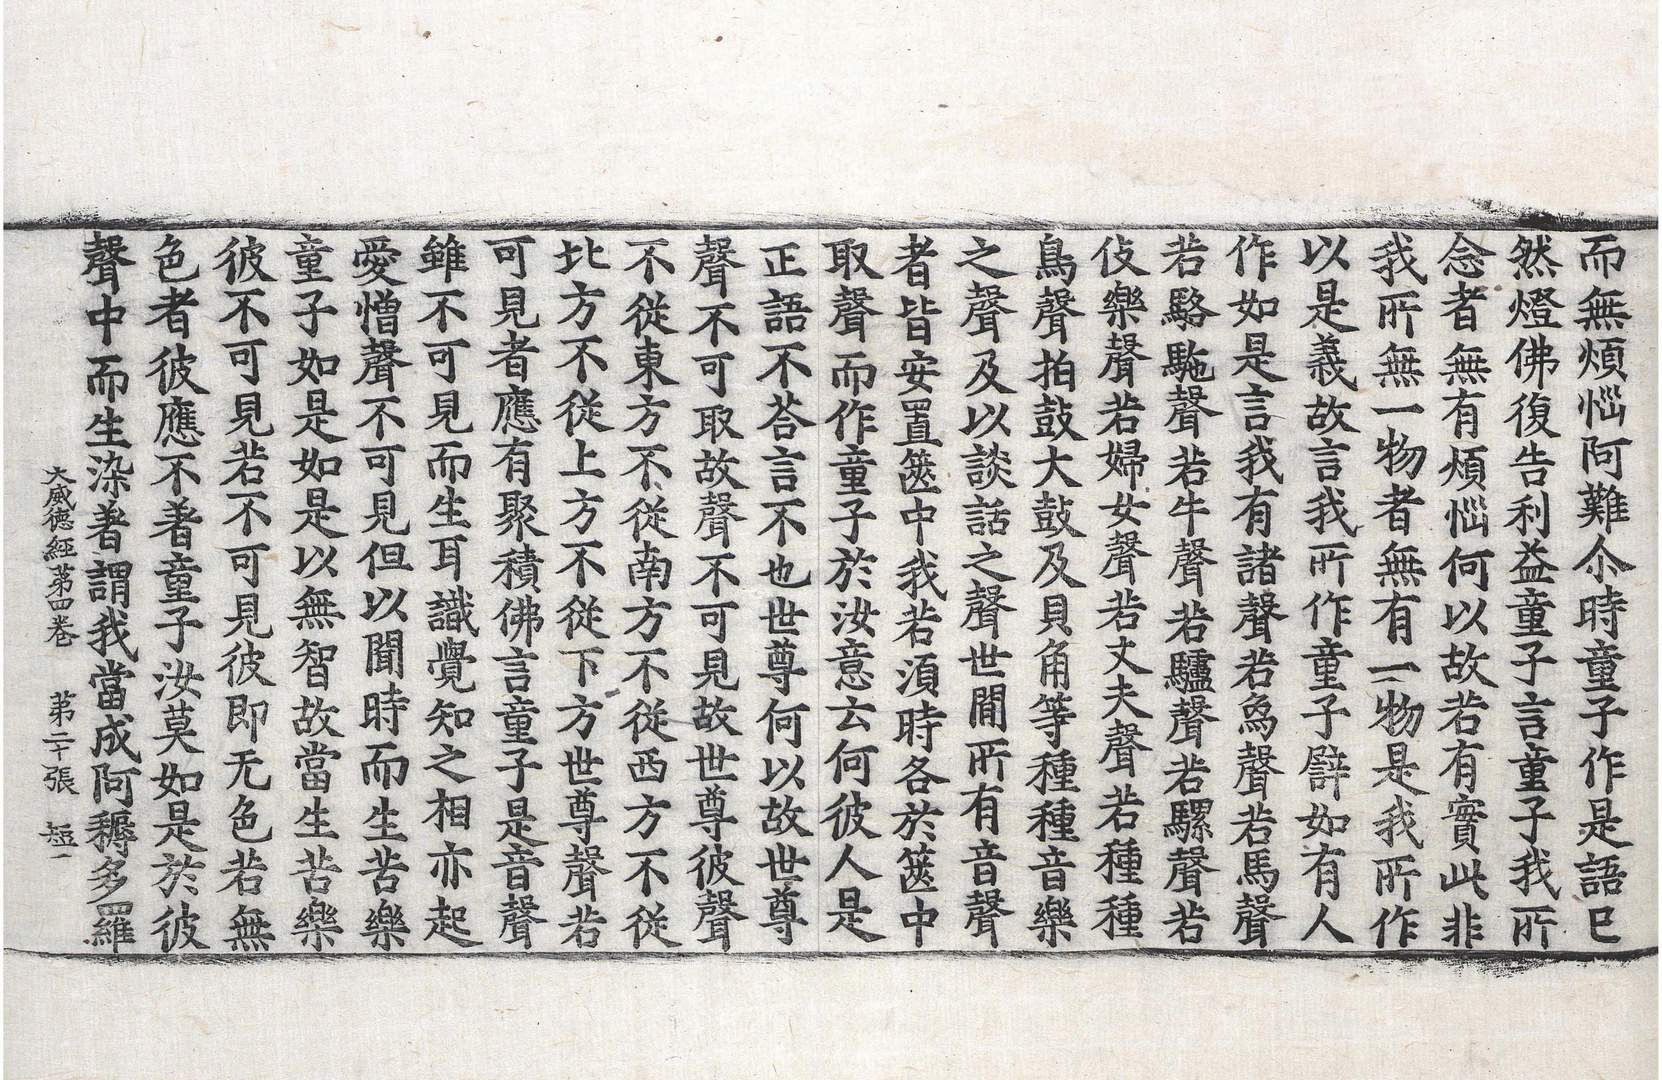 而無煩惱阿難尒時童子作是語已
然燈佛復告利益童子言童子我所
念者無有煩惱何以故若有實此非
我所無一物者無有一物是我所作
以是義故言我所作童子譬如有人
作如是言我有諸聲若爲聲若馬聲
若駱駞聲若牛聲若驢聲若騾聲若
伎樂聲若婦女聲若丈夫聲若種種
鳥聲拍鼓大鼓及貝角等種種音樂
之聲及以談話之聲世閒所有音聲
者皆安置篋中我若湏時各於篋中
取聲而作童子於汝意云何彼人是
正語不荅言不也世尊何以故世尊
聲不可取故聲不可見故世尊彼聲
不從東方不從南方不從西方不從
北方不從上方不從下方世尊聲若
可見者應有聚積佛言童子是音聲
雖不可見而生耳識覺知之相亦起
愛憎聲不可見但以聞時而生苦樂
童子如是如是以無智故當生苦樂
彼不可見若不可見彼即无色若無
色者彼應不著童子汝莫如是於彼
聲中而生染著謂我當成阿耨多羅
大威德經第四卷 第二十張 短一